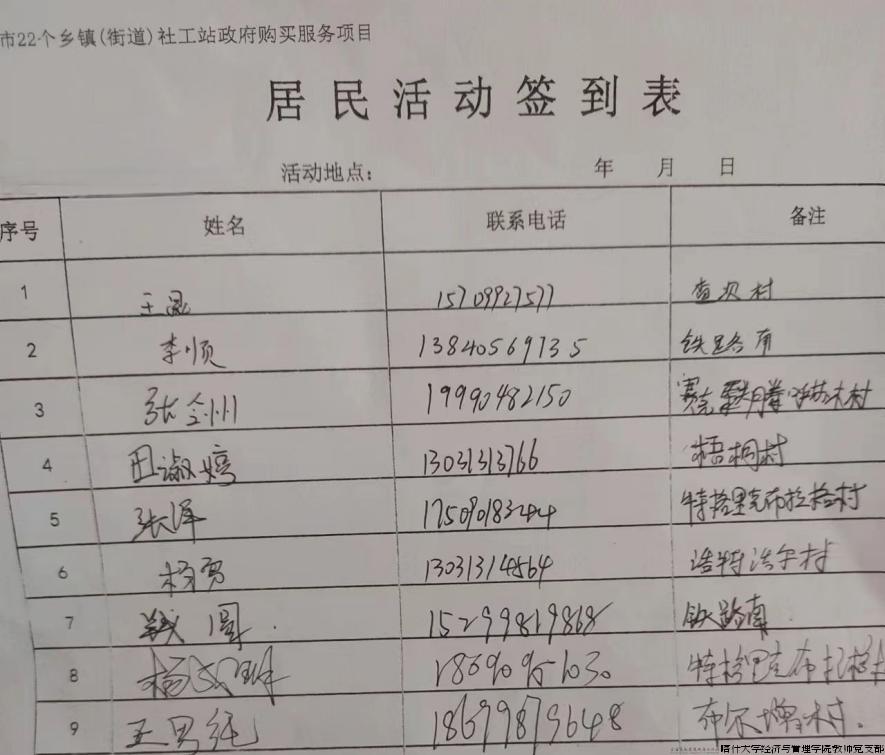 市22个乡镇(街道)社工站政府购买服务项目
居民活动签到表
活动地点: 年 月 日
序号 姓名 联系电话 备注
1 王晁 15709927577 查汉村
2 李顺 13840569735 铁路南
3 张剑州 19990482150 赛克 腾 村
4 田淑婷 13031313766 梧桐村
5 张泽 175090183244 特格里克布拉格村
6 杨勇 13031314864 浩特浩尔村
7 钱圆 15299819868 铁路南
8 杨 琳 特格里克布拉格村
9 王 纯 18699879648 布尔 村
喀什大学经济与管理学院教师党支部